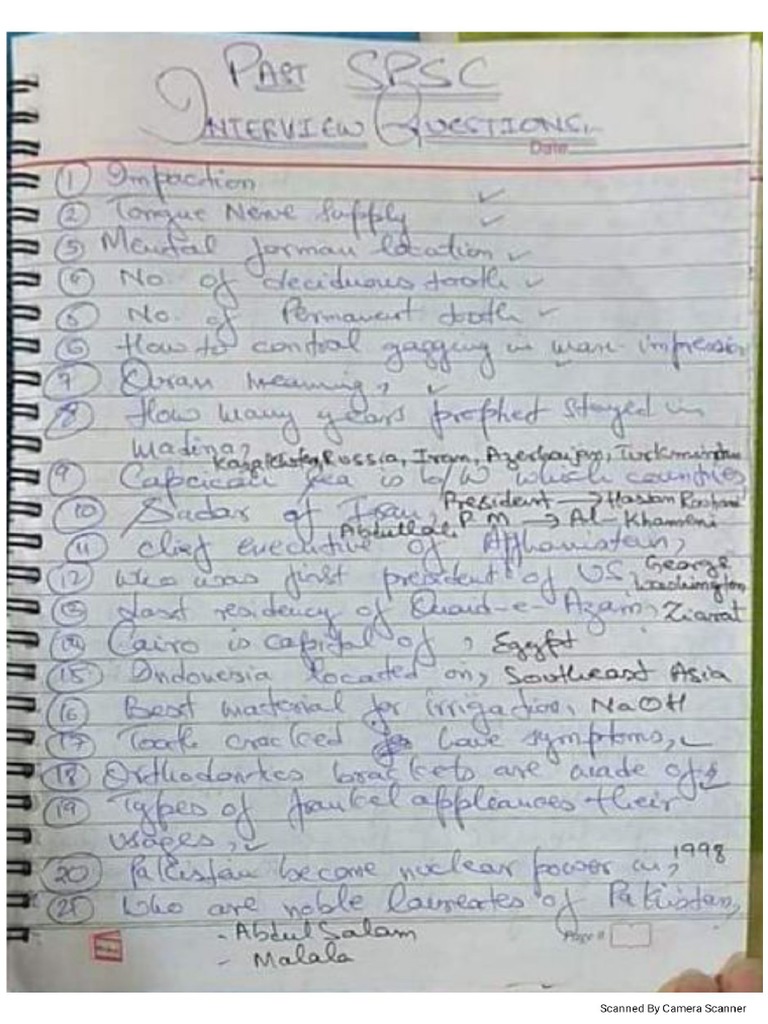 PAST SPSC
INTERVIEW QUESTIONS
Date
① Impaction ✓
② Tongue Nerve Supply ✓
③ Mental forman location ✓
④ No. of deciduous tooth ✓
⑤ No. of Permanent tooth ✓
⑥ How to control gagging in impression
⑦ Quran meaning, ✓
⑧ How many years prophet stayed in
Madina?
Russia, Iran, Azerbaijan,
⑨ sea is b/w which countries
President → Hasan
⑩ Sadar of Iran, P.M → Al-Khameni
Abdullah
⑪ chief executive of Afghanistan,
⑫ who was first president of US, George Washington
⑬ Last residency of Quaid-e-Azam, Ziarat
⑭ Cairo is capital of, Egypt
⑮ Indonesia located on, Southeast Asia
⑯ Best material for irrigation, NaOH
⑰ Tooth cracked have symptoms, ✓
⑱ brackets are made of, ✓
⑲ Types of frankel appleances their
usages, ✓
⑳ Pakistan become nuclear power in, 1998
㉑ who are noble laureates of Pakistan,
- Abdul Salam
- Malala
Page #
Scanned By Camera Scanner